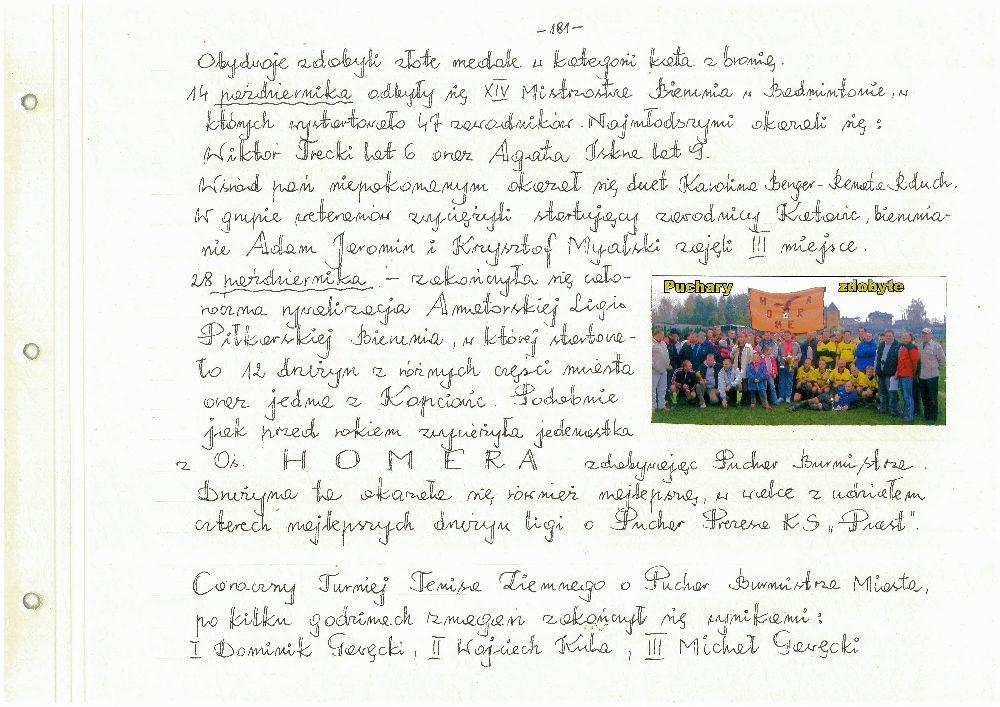 -181-
Obydwoje zdobyli złote medale w kategorii kata z bronią.
14 października odbyły się XIV Mistrzostwa Bierunia w Badmintonie, w
których wystartowało 47 zawodników. Najmłodszymi okazali się :
Wiktor Trecki lat 6 oraz Agata Iskra lat 9.
Wśród pań niepokonanym okazał się duet Karolina Berger - Renata Rduch.
W grupie weteranów zwyciężyli startujący zawodnicy Katowic, bierunia-
nie Adam Jeromin i Krzysztof Myalski zajęli III miejsce.
28 października - zakończyła się cało-
roczna rywalizacja Amatorskiej Ligi
Piłkarskiej Bierunia, w której startowa-
ło 12 drużyn z różnych części miasta
oraz jedna z Kopciowic. Podobnie
jak przed rokiem zwyciężyła jedenastka
z Os. HOMERA zdobywając Puchar Burmistrza.
Drużyna ta okazała się również najlepszą, w walce z udziałem
czterech najlepszych drużyn ligi o Puchar Prezesa KS „Piast".
Puchary zdobyte
HOMER
Coroczny Turniej Tenisa Ziemnego o Puchar Burmistrza Miasta,
po kilku godzinach zmagań zakończył się wynikami :
I Dominik Garęcki, II Wojciech Kula, III Michał Garęcki